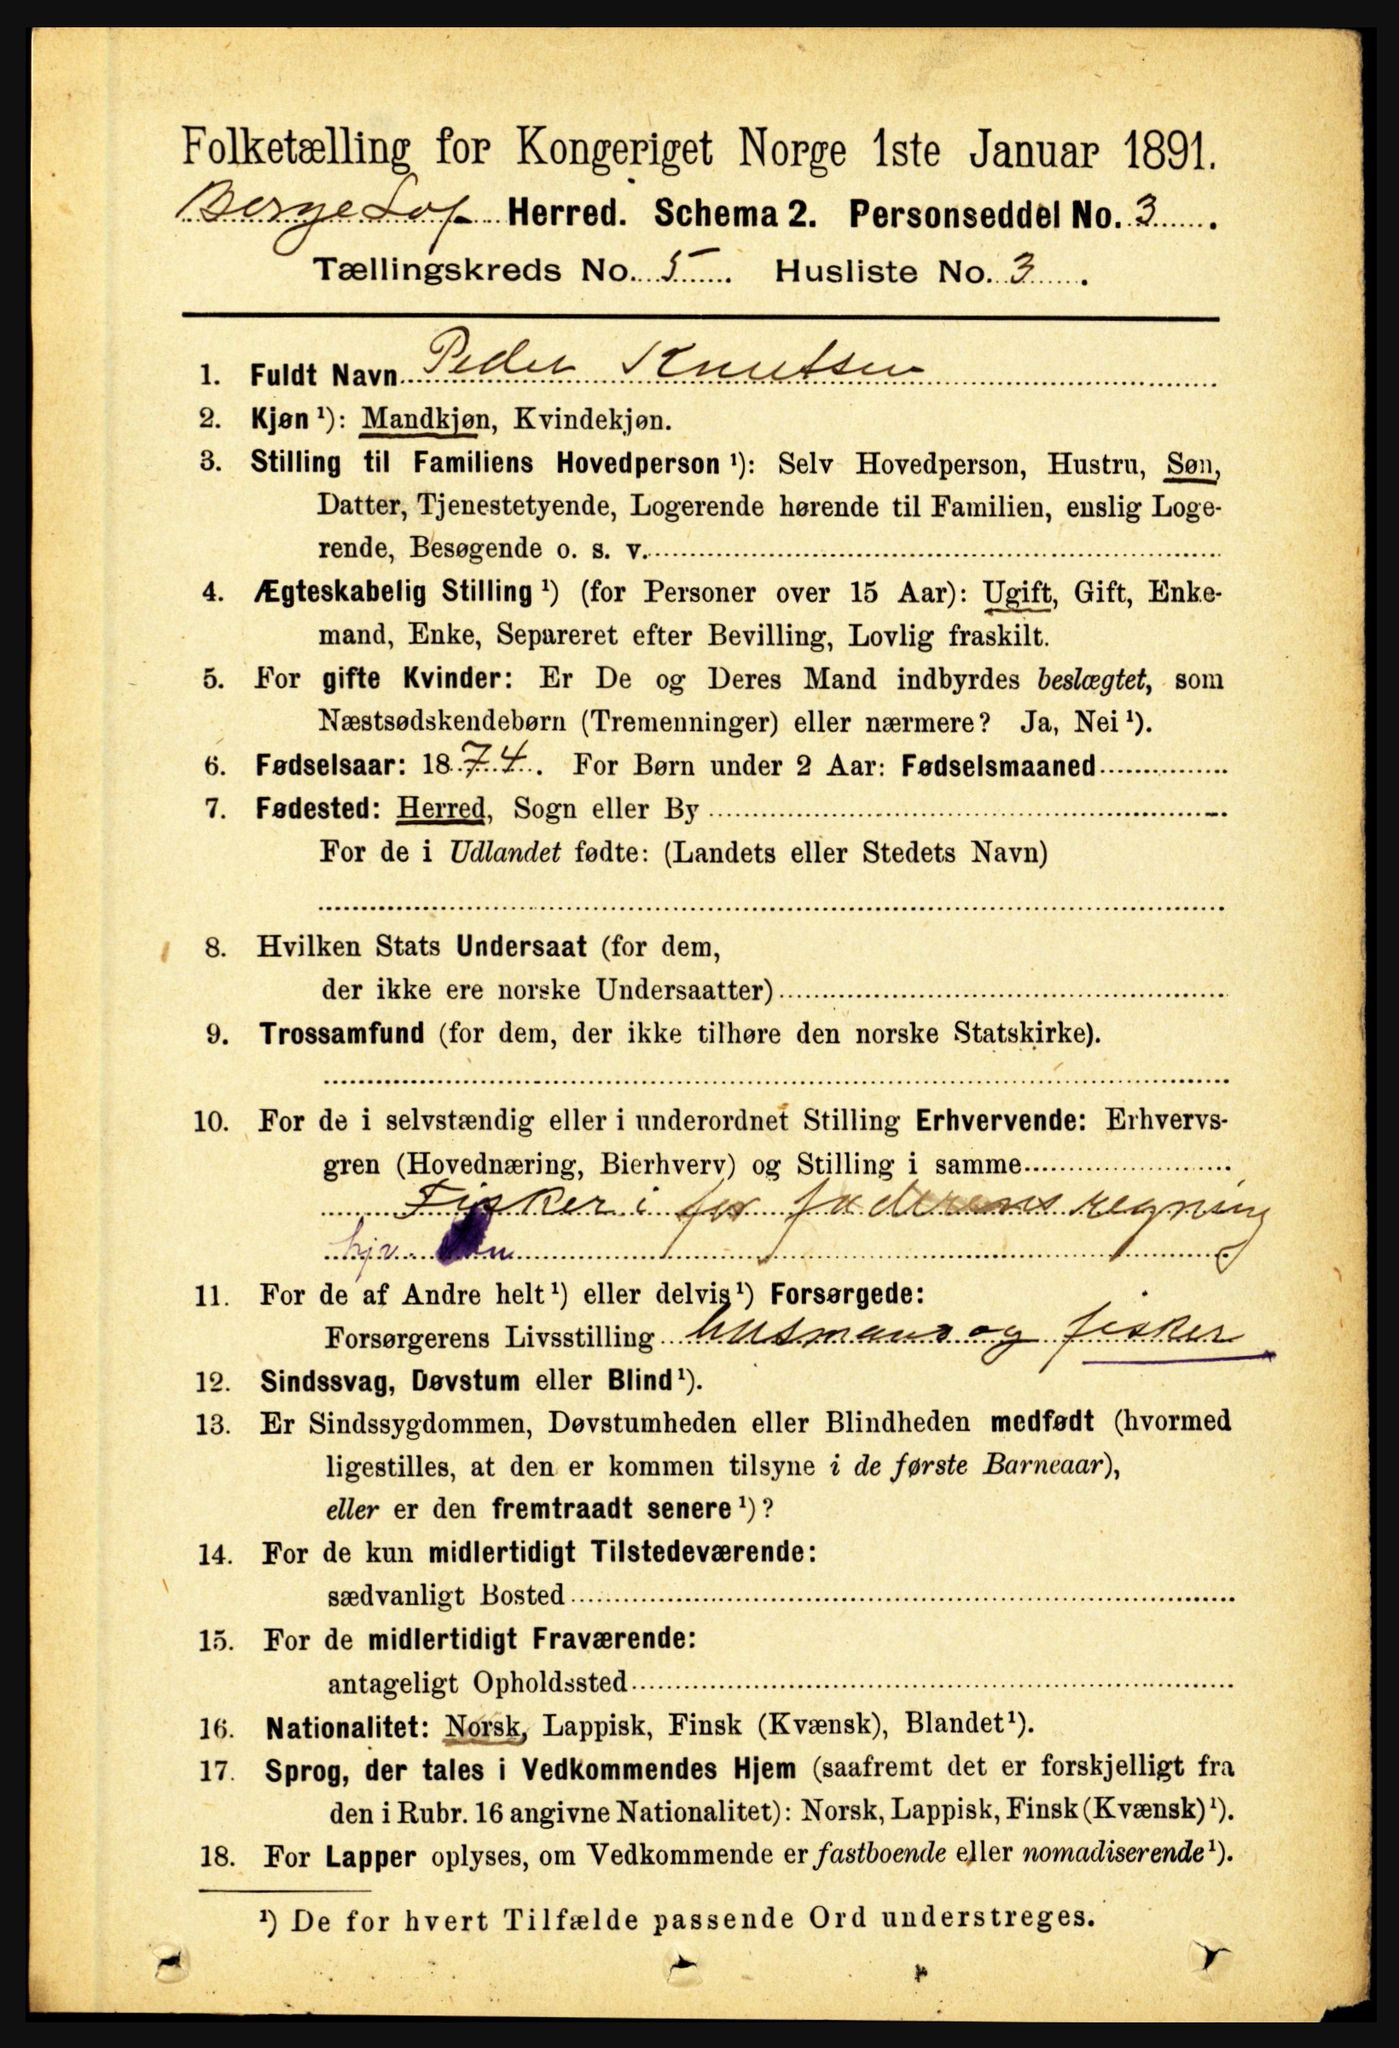 Folketælling for Kongeriget Norge 1ste Januar 1891.
Borge Lof Herred. Schema 2. Personseddel No. 3.
Tællingskreds No. 5. Husliste No. 3.
1. Fuldt Navn Peder Knutsen
2. Kjøn ¹): Mandkjøn, Kvindekjøn.
3. Stilling til Familiens Hovedperson ¹): Selv Hovedperson, Hustru, Søn,
Datter, Tjenestetyende, Logerende hørende til Familien, enslig Loge-
rende, Besøgende o. s. v.
4. Ægteskabelig Stilling ¹) (for Personer over 15 Aar): Ugift, Gift, Enke-
mand, Enke, Separeret efter Bevilling, Lovlig fraskilt.
5. For gifte Kvinder: Er De og Deres Mand indbyrdes beslægtet, som
Næstsødskendebørn (Tremenninger) eller nærmere? Ja, Nei ¹).
6. Fødselsaar: 1874. For Børn under 2 Aar: Fødselsmaaned
7. Fødested: Herred, Sogn eller By
For de i Udlandet fødte: (Landets eller Stedets Navn)
8. Hvilken Stats Undersaat (for dem,
der ikke ere norske Undersaatter)
9. Trossamfund (for dem, der ikke tilhøre den norske Statskirke).
10. For de i selvstændig eller i underordnet Stilling Erhvervende: Erhvervs-
gren (Hovednæring, Bierhverv) og Stilling i samme
Fisker i for faderens regning
hjv.
11. For de af Andre helt ¹) eller delvis ¹) Forsørgede:
Forsørgerens Livsstilling husmand og fisker
12. Sindssvag, Døvstum eller Blind ¹).
13. Er Sindssygdommen, Døvstumheden eller Blindheden medfødt (hvormed
ligestilles, at den er kommen tilsyne i de første Barneaar),
eller er den fremtraadt senere ¹)?
14. For de kun midlertidigt Tilstedeværende:
sædvanligt Bosted
15. For de midlertidigt Fraværende:
antageligt Opholdssted
16. Nationalitet: Norsk, Lappisk, Finsk (Kvænsk), Blandet ¹).
17. Sprog, der tales i Vedkommendes Hjem (saafremt det er forskjelligt fra
den i Rubr. 16 angivne Nationalitet): Norsk, Lappisk, Finsk (Kvænsk) ¹).
18. For Lapper oplyses, om Vedkommende er fastboende eller nomadiserende ¹).
¹) De for hvert Tilfælde passende Ord understreges.